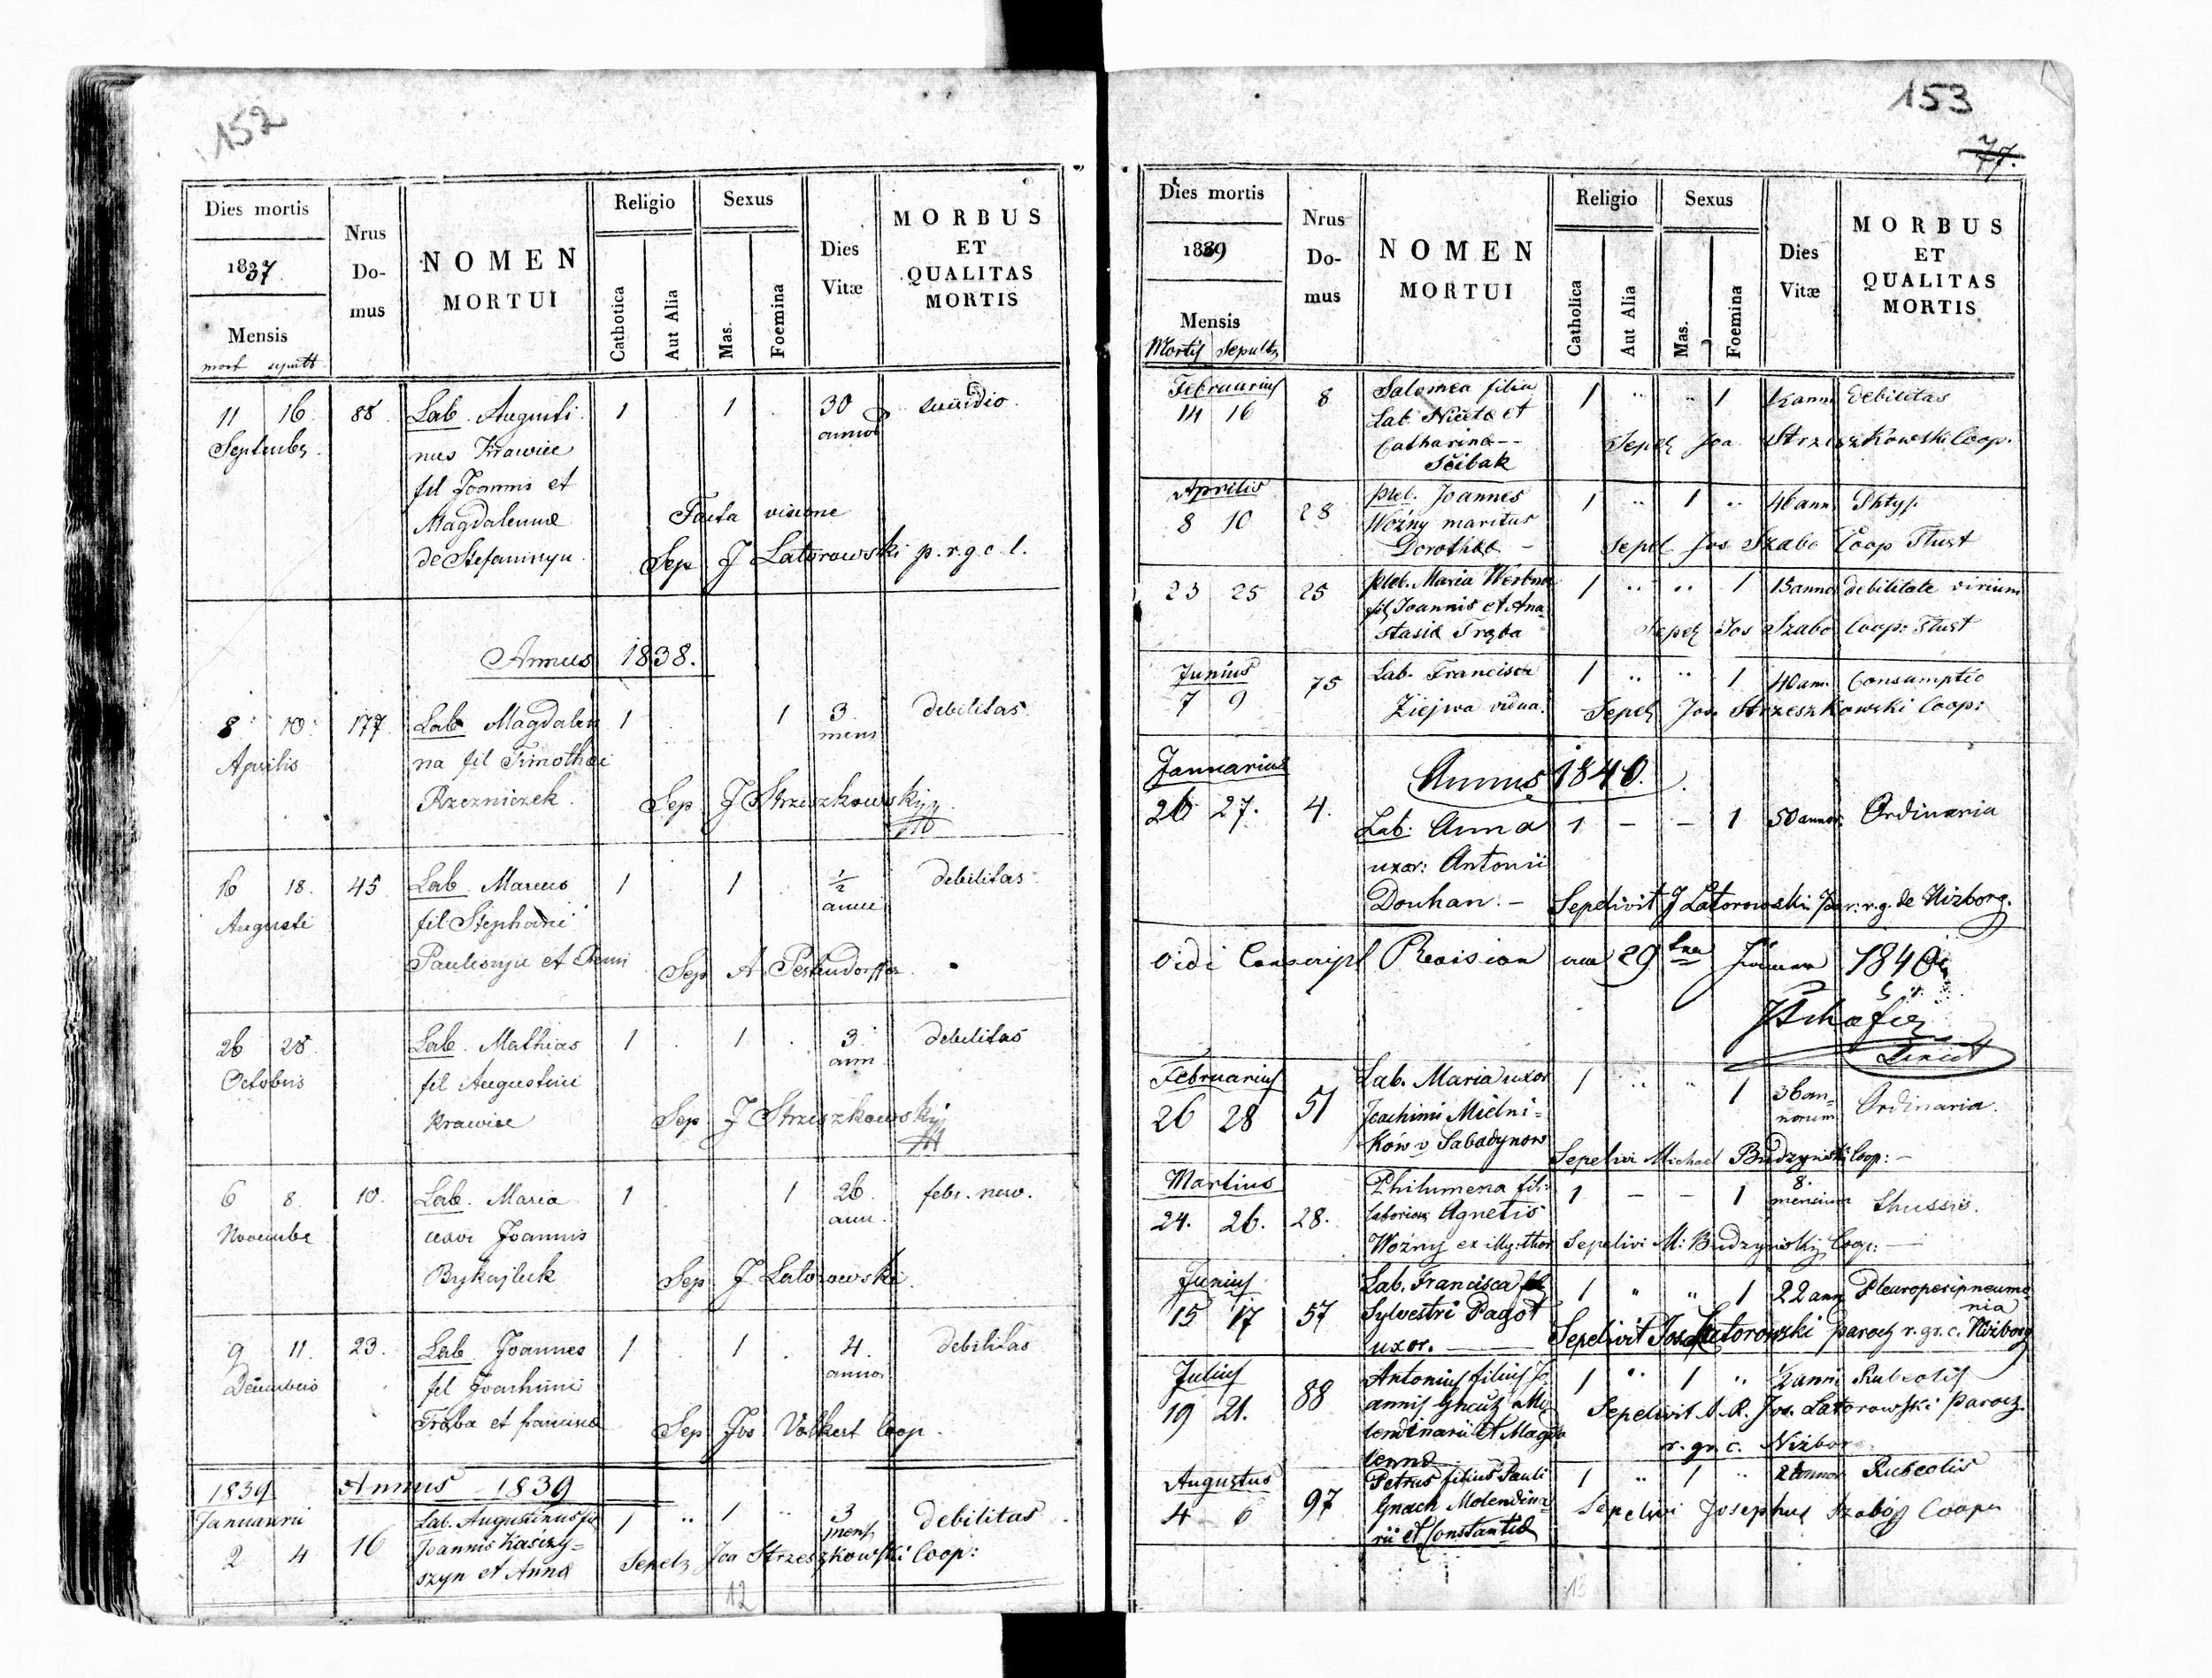 152
Dies mortis
1837
Mensis
mort sepult
Nrus Do- mus
NOMEN MORTUI
Religio
Catholica
Aut Alia
Sexus
Mas.
Foemina
Dies Vitæ
MORBUS ET QUALITAS MORTIS
11 16 88 Lab. Augusti 1 1 30 suicidio
Septembr nus Krawiec annor
fil Joannis et
Magdalennae Facta visione
de Stefaniszyn Sep J Latorowski p. r. g. c. l.
Annus 1838.
8 10 177 Lab Magdalen 1 1 3 debilitas
Aprilis na fil Timothei mens
Rzezniczek Sep J Strzeszkowskij
16 18. 45 Lab. Marcus 1 1 1/2 debilitas
Augusti fil Stephani anni
Sep A
26 28 Lab. Mathias 1 1 3 debilitas
Octobris fil Augustini ann
Krawiec Sep J Strzeszkowskij
6 8. 10. Lab. Maria 1 1 26 febr. nerv.
Novembr uxor Joannis ann.
Bykajluk Sep J Latorowski.
9 11. 23. Lab Joannes 1 1 4. debilitas
Decembris fil Joachimi annor
Trąba et franciscæ Sep Jos Volkert Coop.
1839 Annus 1839
Januarii Lab. Augustinus fil 1 " 1 " 3 debilitas
2 4 16 Joannis mens
szyn et Annæ Sepelz Joa Strzeszkowski Coop:
12
153
77.
Dies mortis
1839
Mensis
Mortis Sepultz
Nrus Do- mus
NOMEN MORTUI
Religio
Catholica
Aut Alia
Sexus
Mas.
Foemina
Dies Vitæ
MORBUS ET QUALITAS MORTIS
Februarius 8 Salomea filia 1 " " 1 1/2 anni debilitas
14 16 Lab Niceta et
Catharina-- Sepelz Joa Strzeszkowski Coop.
Scibak
Aprilis pleb. Joannes 1 " 1 " 46 ann. Phtys.
8 10 28 Woźny maritus
Dorotheæ - Sepel Jos Szabo Coop Tłust
23 25 25 pleb. Maria 1 " " 1 15 annor debilitate virium
fil Joannis et Ana-
stasiæ Trąba Sepelz Jos Szabo Coop: Tłust
Junius Lab. Francisca 1 " " 1 40 ann. Consumptio
7 9 75 Ziejwa vidua. Sepelz Joa. Strzeszkowski Coop:
Januarius Annus 1840.
26 27. 4. Lab: Anna 1 - - 1 50 annor. Ordinaria
uxor: Antonii
Douhan. - Sepelivit J Latorowski Par: r. g. de Nizborg.
Vidi Conscript Revision am 29 Jänner 1840
JSchäfer
Februarius Lab. Maria uxor 1 " " 1 36 an- Ordinaria.
26 28 51 Joachimi Mielni- norum
ków v Sabadynow Sepelivi Michael Budzynski Coop: -
Martius Philumena fili- 1 - - 1 8. thussis.
24. 26. 28. laboriosæ Agnetis mensium
Woźny ex illg: thor Sepelivi M: Budzynskij Coop: -
Junius Lab. Francisca 1 " " 1 22 ann Pleuroperipneumo-
15 17 57 Sylvestri Pagot nia
uxor. Sepelivit Jos Latorowski paroch r. gr. c. Niżborg
Julius Antonius filius Jo- 1 " 1 " 1/2 anni Rubeolis
19 21. 88 annis Mo- Sepelivit A. R. Jos. Latorowski Paroch
lendinarii et Magda- r. gr. c. Niżbor
lennæ
Augustus Petrus filius Pauli 1 " 1 " Rubeolis
4 6 97 Gnach Molendina- Sepelivi Josephus Szabo Coop
rii et Constantiæ
13